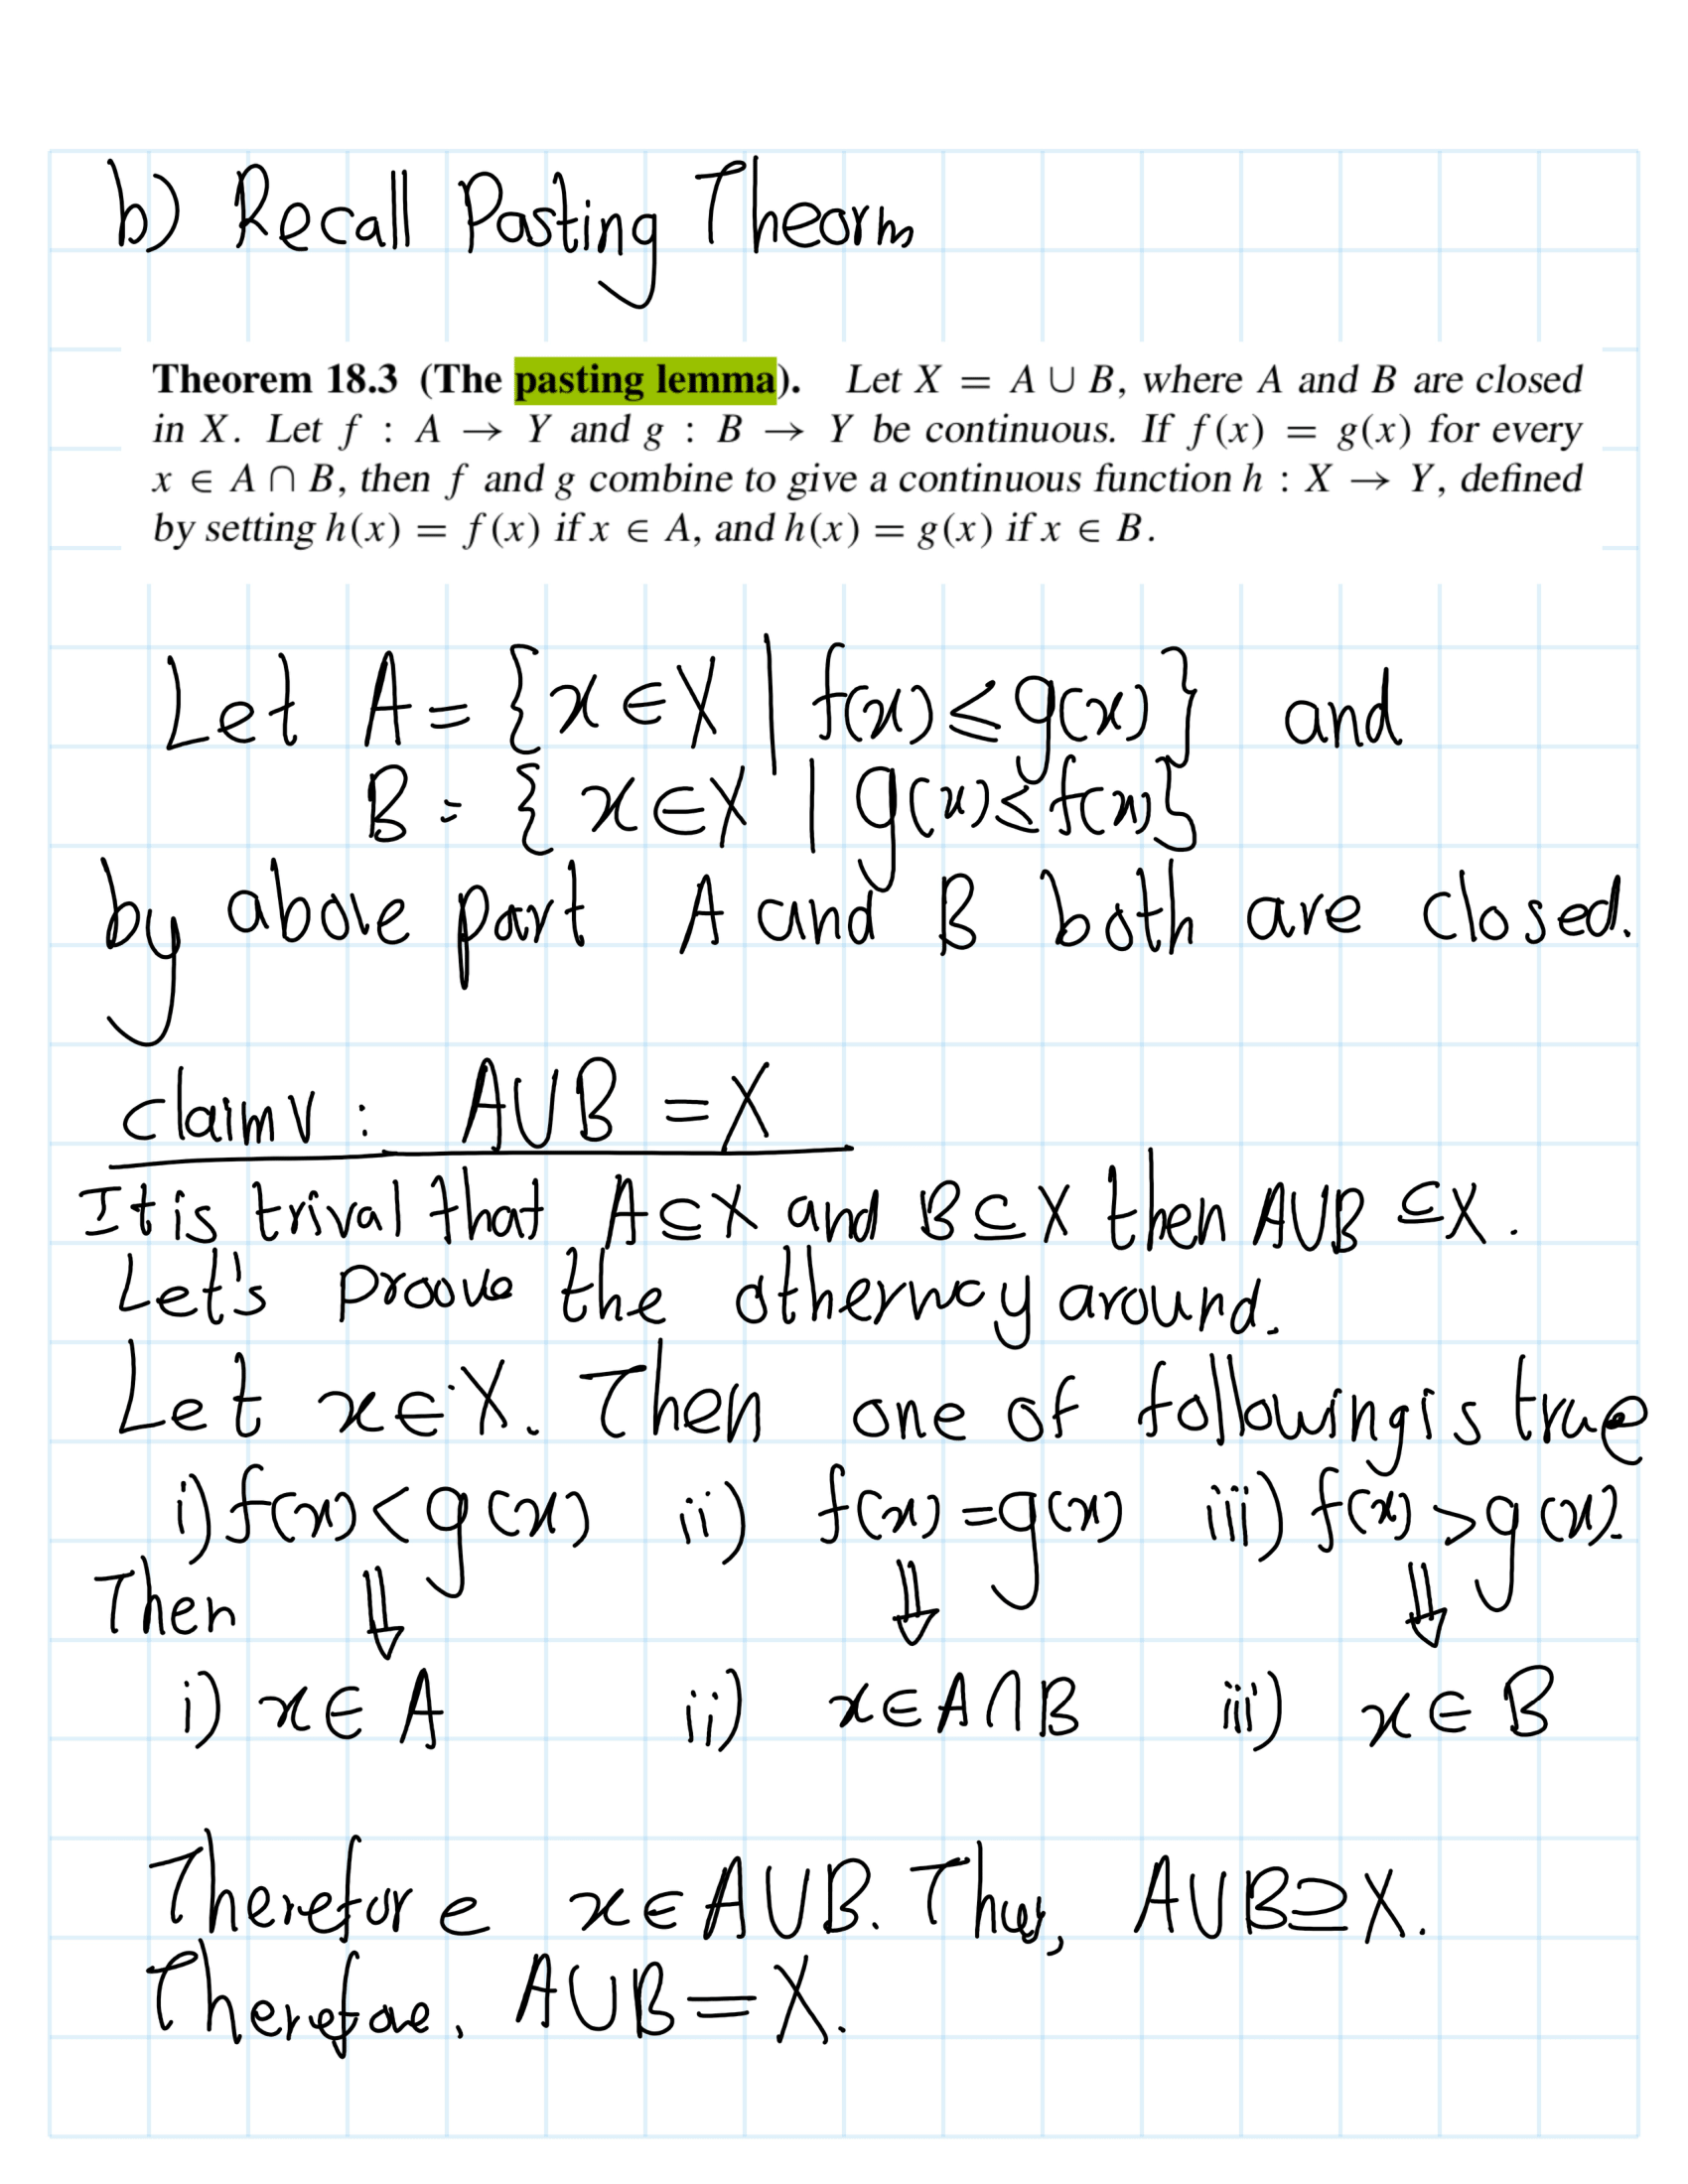 b) Recall Pasting Theorm
Theorem 18.3 (The pasting lemma). Let X = A ∪ B, where A and B are closed
in X. Let f : A → Y and g : B → Y be continuous. If f(x) = g(x) for every
x ∈ A ∩ B, then f and g combine to give a continuous function h : X → Y, defined
by setting h(x) = f(x) if x ∈ A, and h(x) = g(x) if x ∈ B.
Let A = {x ∈ X | f(x) ≤ g(x)} and
B = {x ∈ X | g(x) ≤ f(x)}
by above part A and B both are closed.
claim v : A∪B = X
It is trival that A ⊆ X and B ⊆ X then A∪B ⊆ X.
Let's proove the otherway around.
Let x ∈ X. Then one of following is true
i) f(x) < g(x) ii) f(x) = g(x) iii) f(x) > g(x).
Then ⇓ ⇓ ⇓
i) x ∈ A ii) x ∈ A∩B iii) x ∈ B
Therefore x ∈ A∪B. Thus, A∪B ⊇ X.
Therefore, A∪B = X.